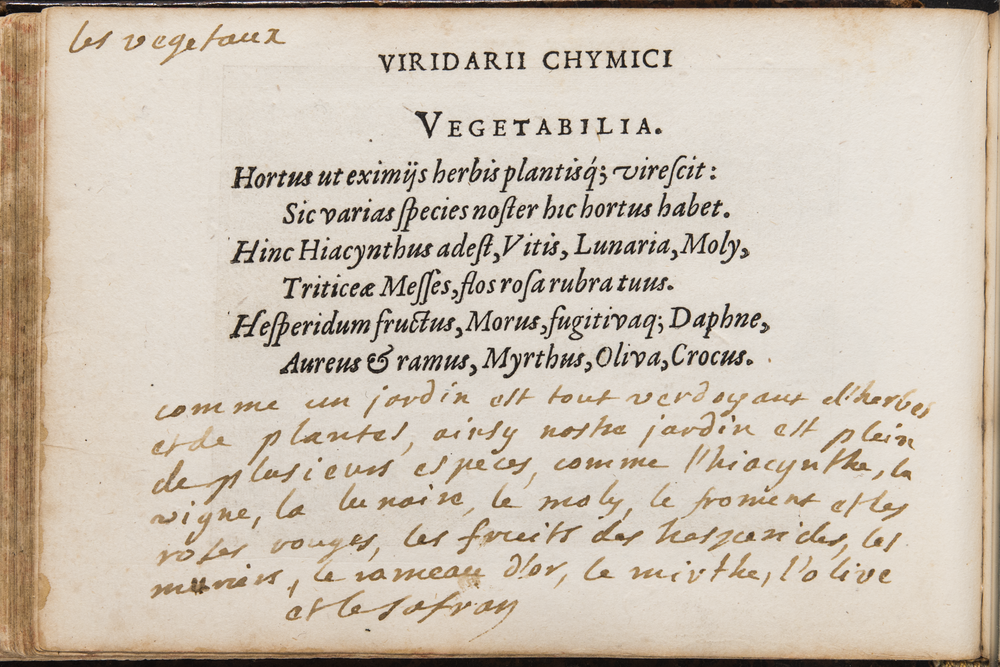 les vegetaux
VIRIDARII CHYMICI
VEGETABILIA.
Hortus ut eximijs herbis plantisq́; vireſcit:
Sic varias ſpecies noſter hic hortus habet.
Hinc Hiacynthus adeſt, Vitis, Lunaria, Moly,
Triticeæ Meſſes, flos roſa rubra tuus.
Heſperidum fructus, Morus, fugitivaq; Daphne,
Aureus & ramus, Myrthus, Oliva, Crocus.
comme un jardin est tout verdoyant d'herbes
et de plantes, ainsy nostre jardin est plein
de plusieurs especes, comme l'hiacynthe, la
vigne, la lunaire, le moly, le froment et les
roses rouges, les fruits des hesperides, les
muriers, le rameau d'or, le mirthe, l'olive
et le safran